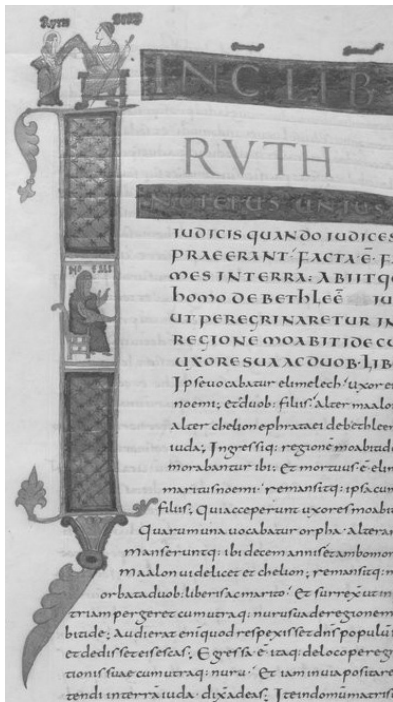 RUTH BOOZ
INC̄ LIB
RVTH
IN DIEBUS UNIUS
IUDICIS QUANDO IUDICES
PRAEERANT · FACTA Ē FA
MES IN TERRA; ABIITQ
homo DE BETHLEĒ IU
UT PEREGRINARETUR IN
REGIONE MOABITIDE CU
UXORE SUA AC DUOB · LIB
NO EMIS
Ipse vocabatur elimelech · uxor ei
noemi; et duob: filiis: alter maalon
alter chelion ephrataei de bethleem
iuda; Ingressiq: regionē moabitide
morabantur ibi: Et mortuus ē elim
maritus noemi · remansitq: ipsa cum
filiis, Qui acceperunt uxores moabi
Quarum una vocabatur orpha · altera
manseruntq: ibi decem annis et ambo mor
maalon videlicet et chelion; remansitq: m
orbata duob: liberis ac marito · Et surrexit ut in
triam pergeret cum utraq: nuru sua de regione m
bitide; Audierat enī quod respexisset dn̄s populū
et dedisset eis escas; Egressa ē itaq: de loco peregri
tionis suae cum utraq: nuru · Et iam in via posita re
tendi in terrā iuda · dix̄ ad eas; Ite in domum matris